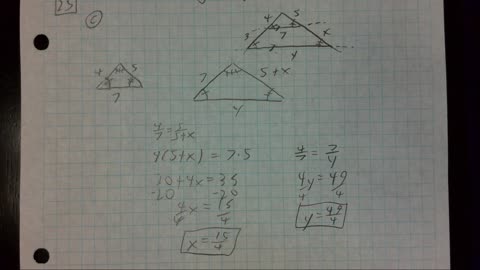 23
c
4 5
3 7 x
y
4 5
7
7 5+x
y
4/7 = 5/5+x
4(5+x) = 7·5
20+4x = 35
-20 -20
4/4 x = 15/4
x = 15/4
4/7 = 7/y
4y = 49
4 4
y = 49/4